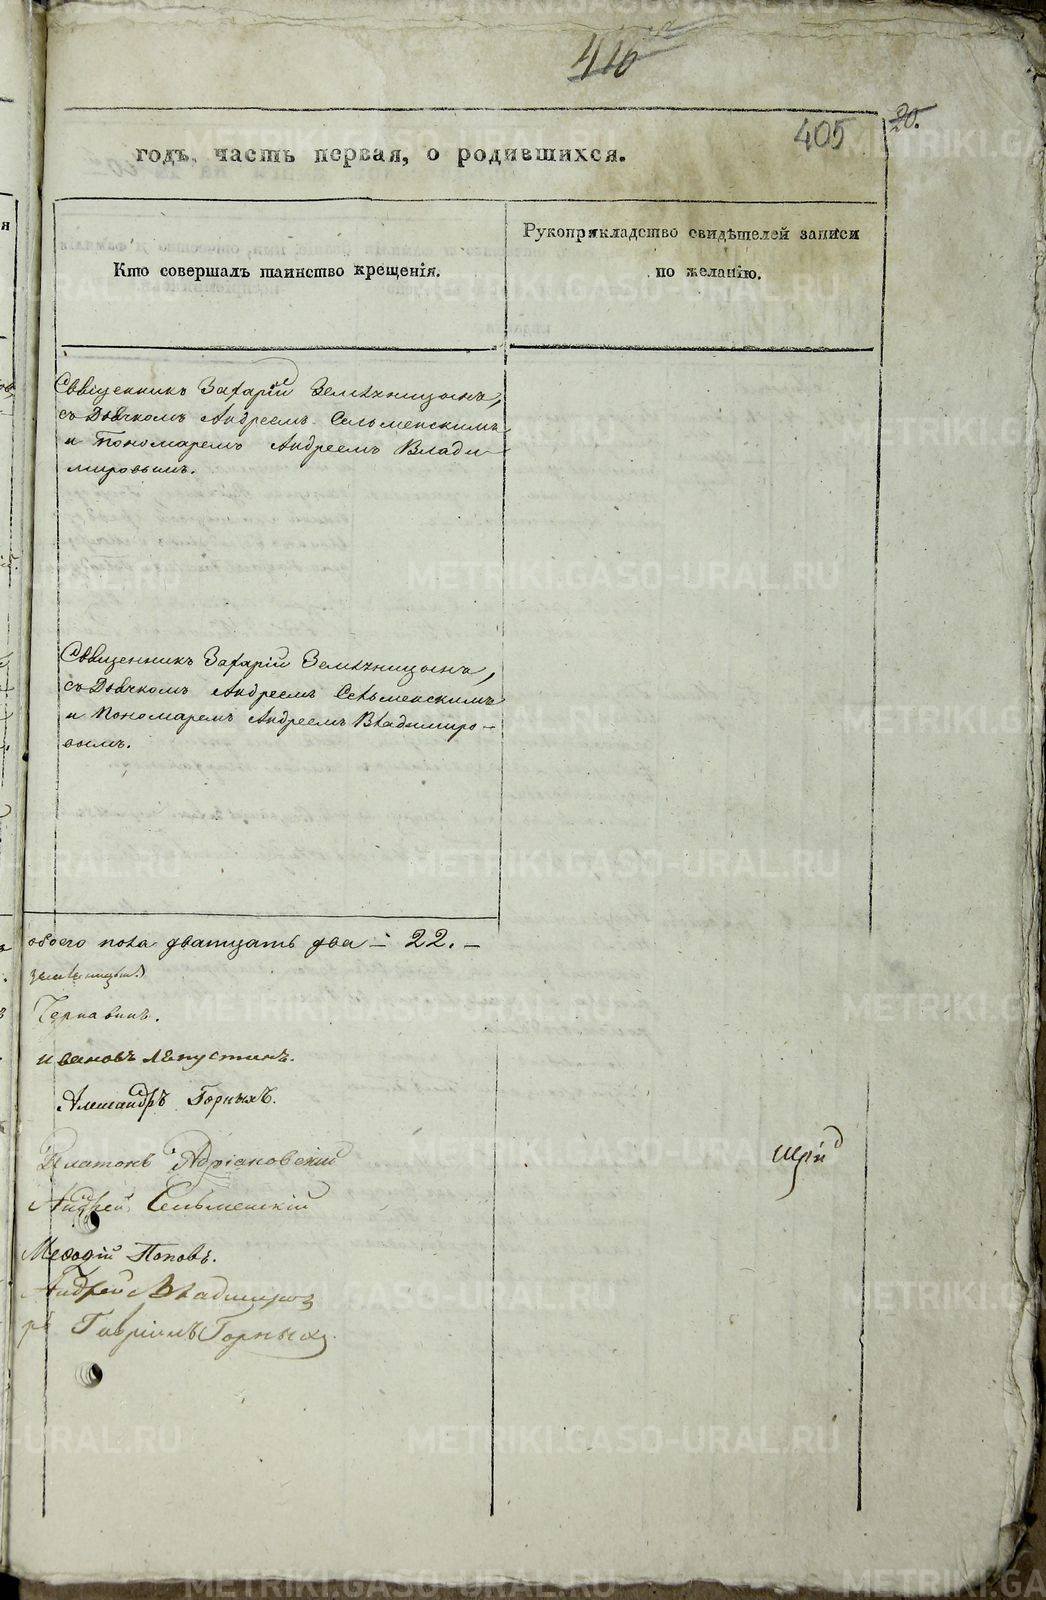 416
405
20.
годъ, часть первая, о родившихся.
Кто совершалъ таинство крещенія.
Рукоприкладство свидѣтелей записи
по желанію.
Священникъ Захарій Землѧницынъ,
съ Дьячкомъ Андреемъ Сельменскимъ
и Пономаремъ Андреемъ Влади-
мировымъ.
Священникъ Захарій Земляницынъ,
съ Дьячкомъ Андреемъ Сельменскимъ
и Пономаремъ Андреемъ Владимиро-
вымъ.
обоего пола дватцать два – 22. –
Земляницынъ
Чернавинъ.
Ивановъ Лѣпустинъ.
Александръ Горныхъ.
Платонъ Адріановскій
щій
Андрей Сельменскій
Меѳодій Поповъ.
Андрей Владимиров
рь Гавріилъ Горныхъ
METRIKI.GASO-URAL.RU